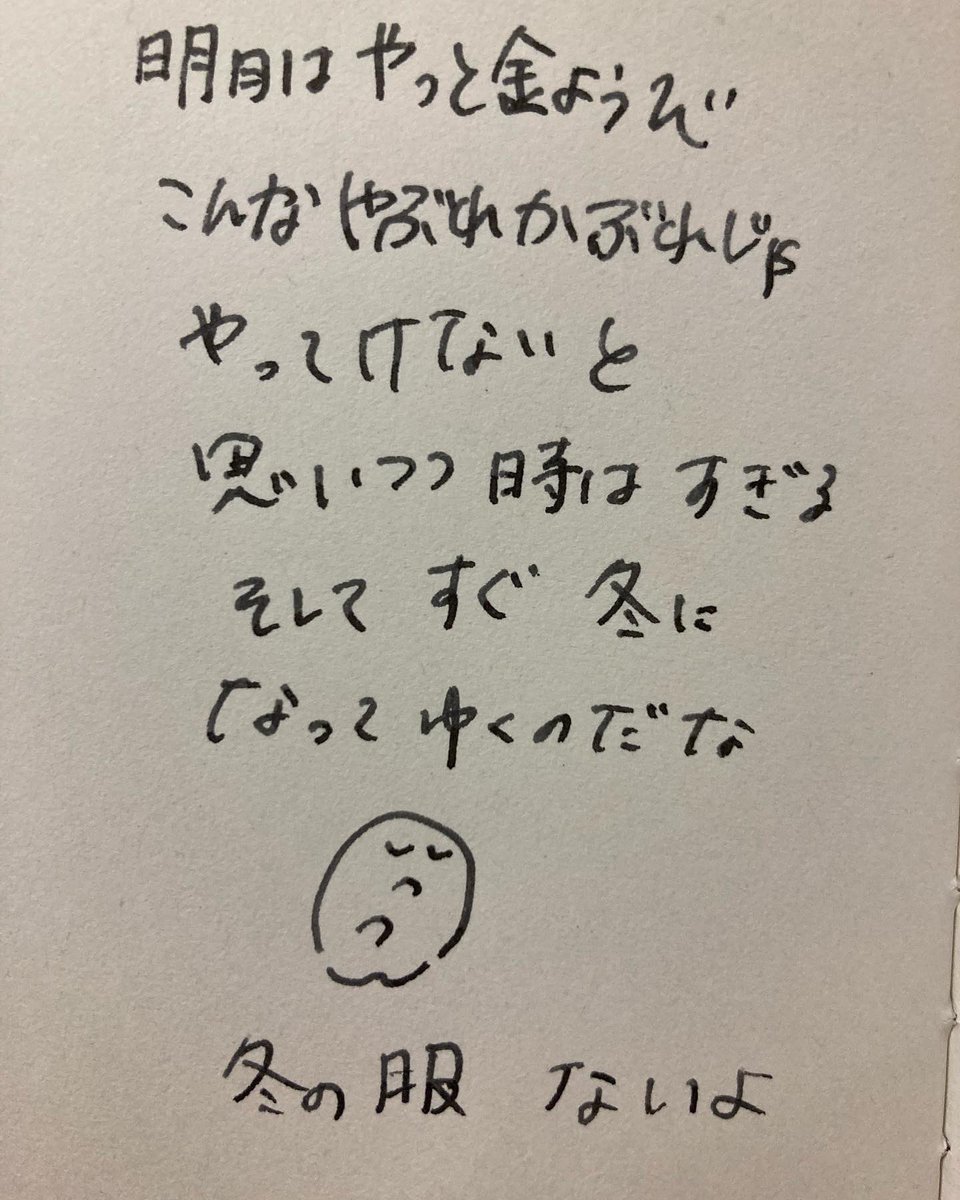 明日はやっと金ようぞい
こんなやぶれかぶれじゃ
やってけてないと
思いつつ時はすぎる
そしてすぐ冬に
なってゆくのだな
冬の服 ないよ